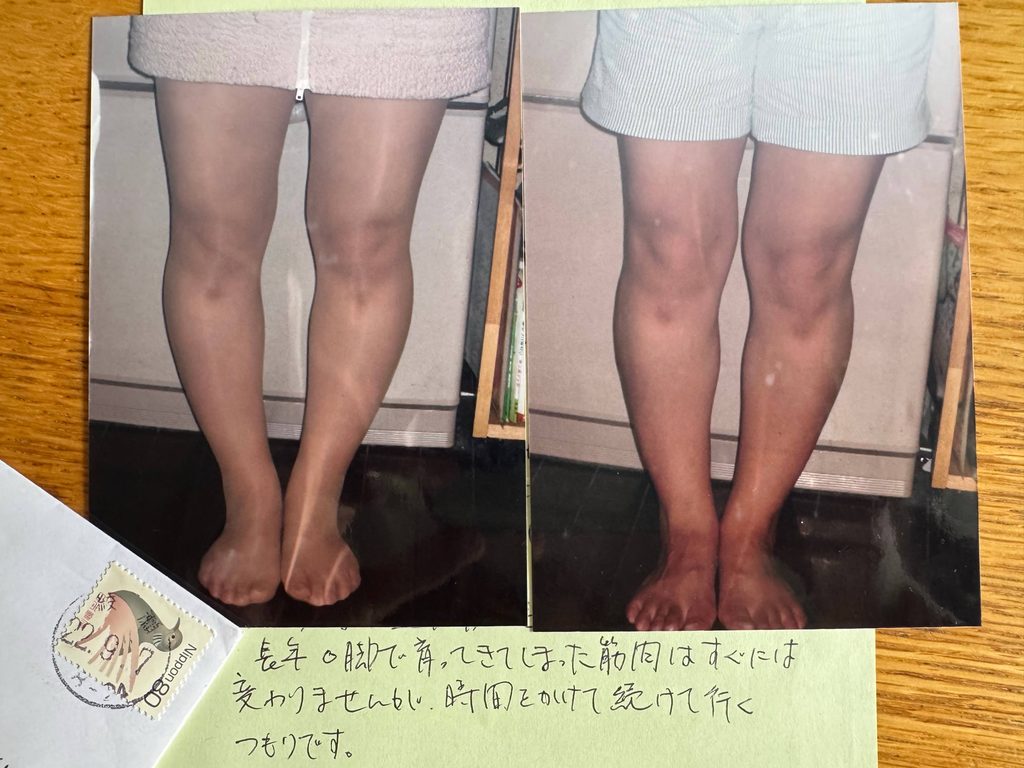 長年O脚で育ってきてしまった筋肉はすぐには
変わりませんが、時間をかけて続けて行く
つもりです。
22.9
80
NIPPON